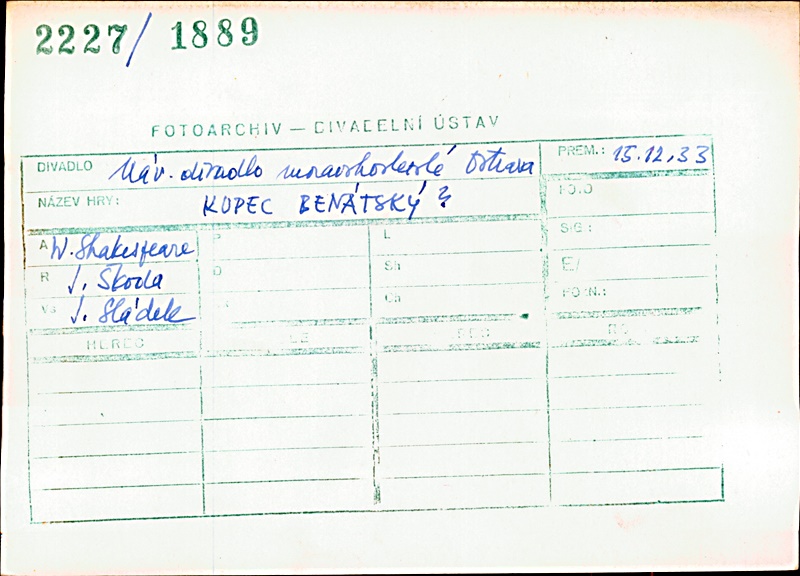 2227/ 1889
FOTOARCHIV — DIVADELNÍ ÚSTAV
DIVADLO Náv. divadlo moravskoslezské Ostrava PREM.: 15.12.33
NÁZEV HRY: KUPEC BENÁTSKÝ ? FO.O
A W. Shakespeare P L SIG:
R J. Škoda D Sh E/
Vs J. Sládek Ch POZN.:
HEREC